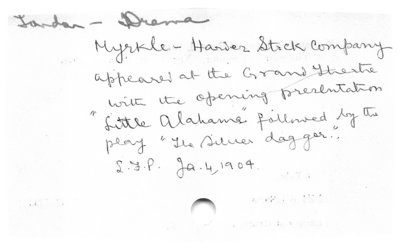 London - Drama
Myrkle - Harder Stock Company
appeared at the Grand Theatre
with the opening presentation
"Little Alabama" followed by the
play "The Silver dagger".
L.F.P. Ja. 4, 1904.